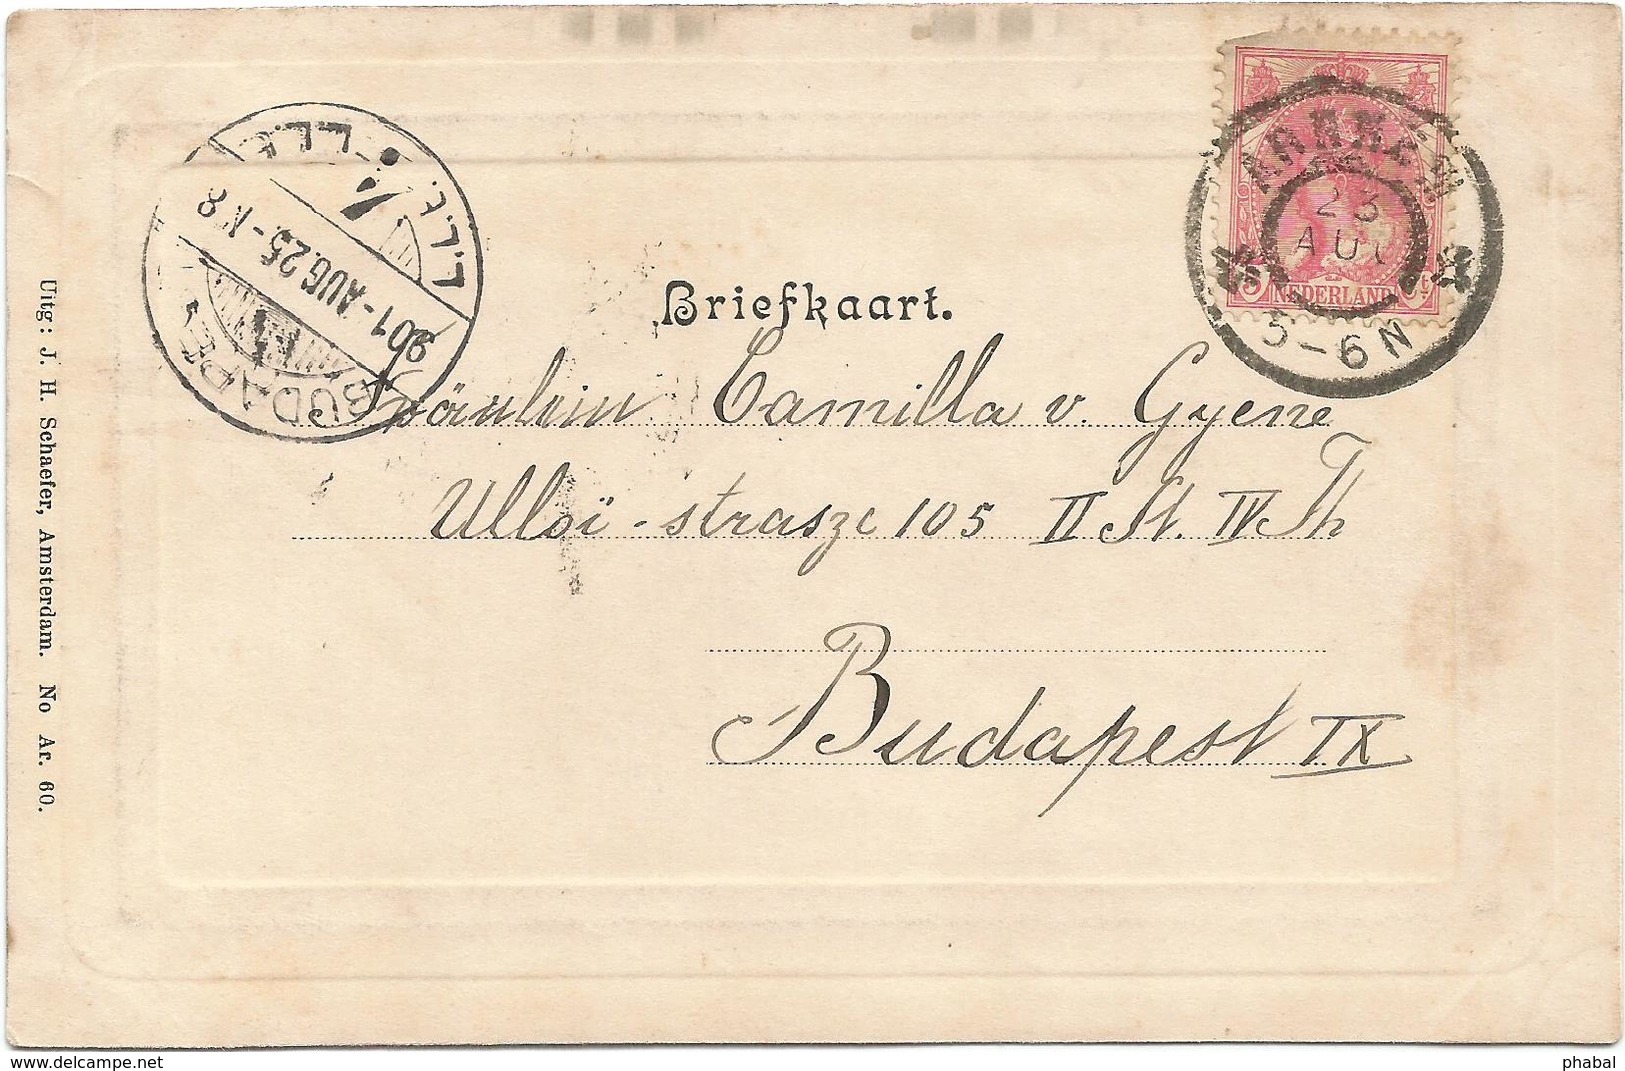 Briefkaart.
Fräulein Camilla v. Gyene
Ulloï-strasze 105 II St. IV Th
Budapest IX
Uitg: J. H. Schaefer, Amsterdam. No Ar. 60.
ARNHEM
23
AUG
5-6N
5 NEDERLAND
BUDAPEST
901-AUG.25-N8
delcampe.net
phabal